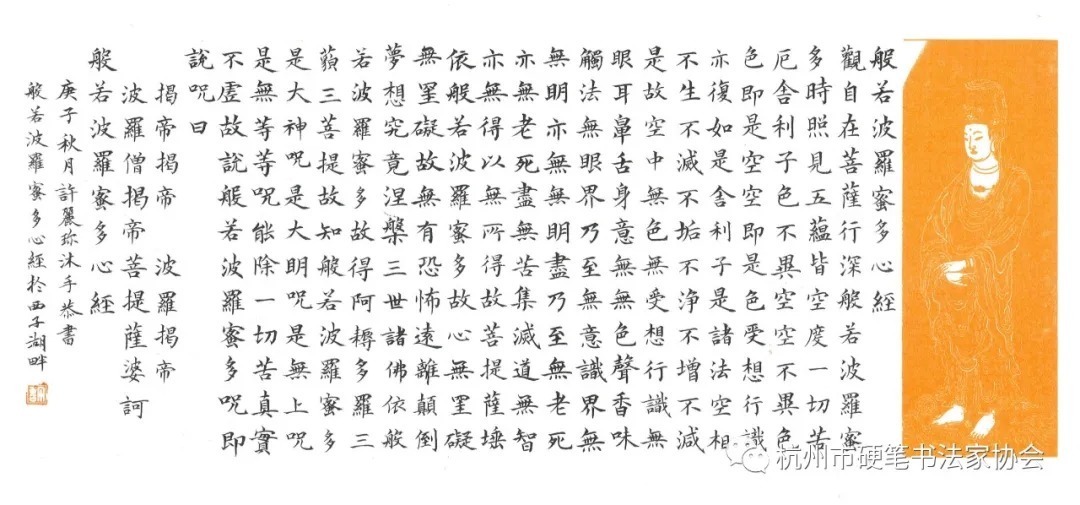 般若波羅蜜多心經
觀自在菩薩行深般若波羅蜜
多時照見五蘊皆空度一切苦
厄舍利子色不異空空不異色
色即是空空即是色受想行識
亦復如是舍利子是諸法空相
不生不滅不垢不淨不增不減
是故空中無色無受想行識無
眼耳鼻舌身意無無色聲香味
觸法無眼界乃至無意識界無
無明亦無無明盡乃至無老死
亦無老死盡無苦集滅道無智
亦無得以無所得故菩提薩埵
依般若波羅蜜多故心無罣礙
無罣礙故無有恐怖遠離顛倒
夢想究竟涅槃三世諸佛依般
若波羅蜜多故得阿耨多羅三
藐三菩提故知般若波羅蜜多
是大神呪是大明呪是無上呪
是無等等呪能除一切苦真實
不虛故說般若波羅蜜多呪即
說呪曰
揭帝揭帝 波羅揭帝
波羅僧揭帝菩提薩婆訶
般若波羅蜜多心經
庚子秋月許麗珍沐手恭書
般若波羅蜜多心經於西子湖畔
杭州市硬笔书法家协会